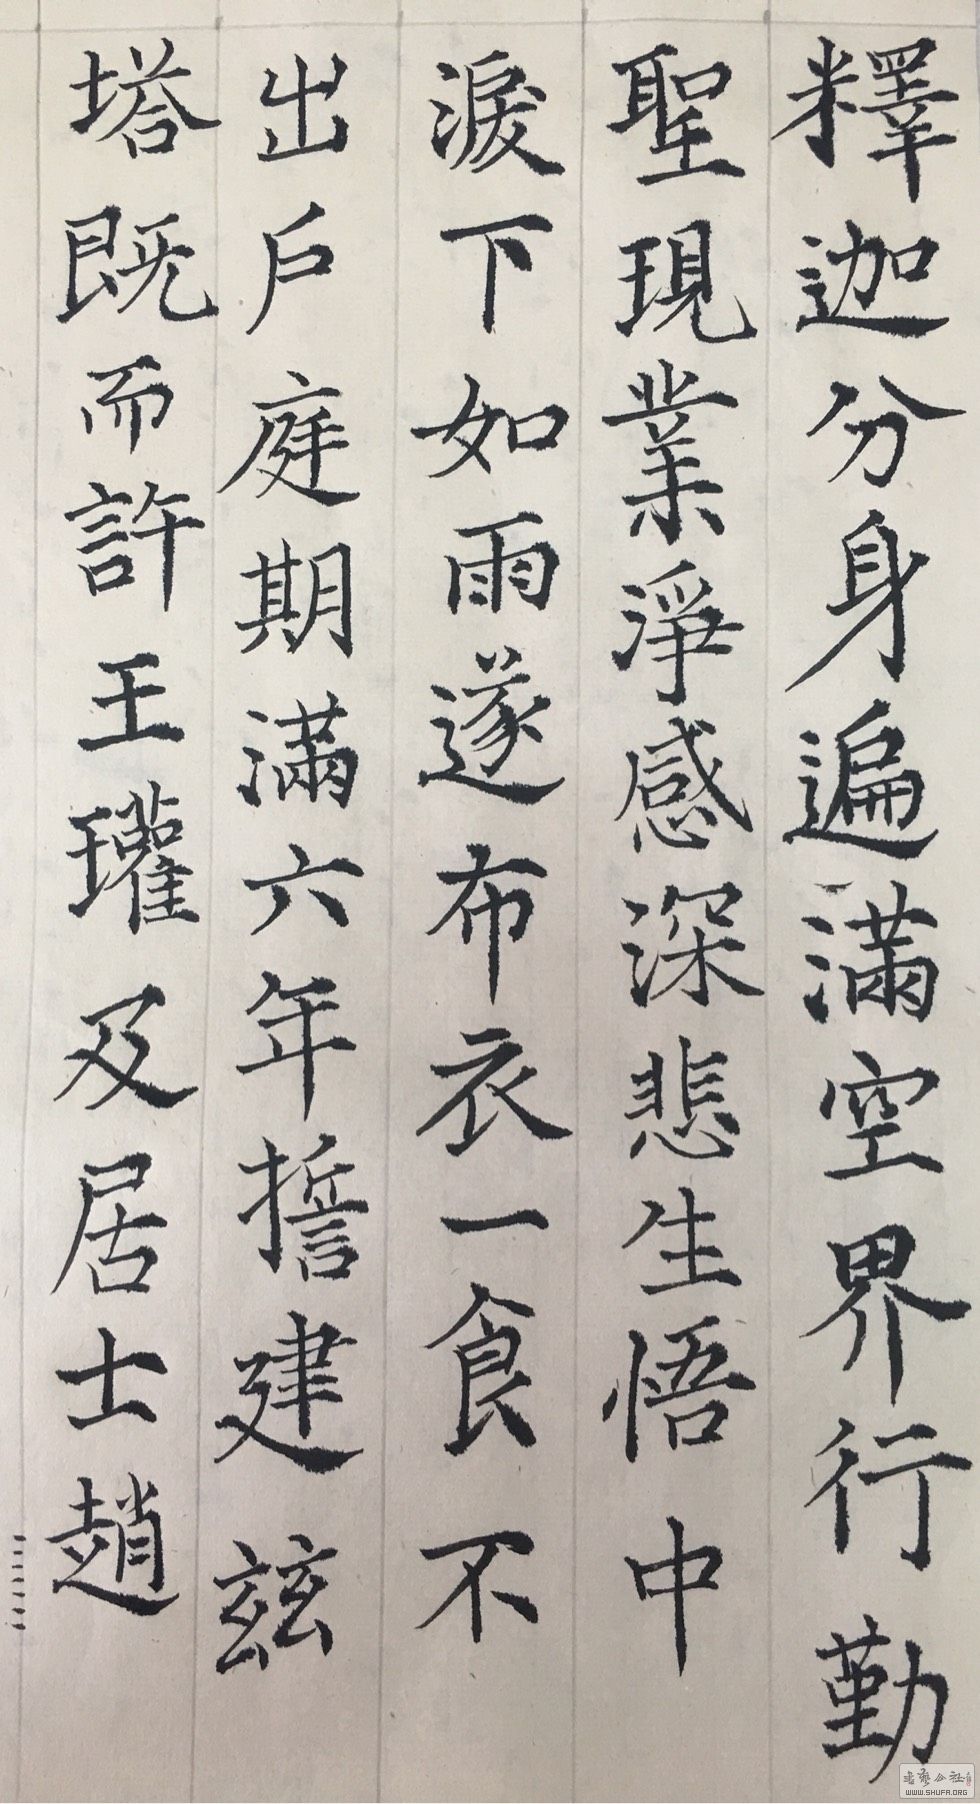 釋迦分身遍滿空界行勤
聖現業淨感深悲生悟中
淚下如雨遂布衣一食不
出戶庭期滿六年誓建茲
塔既而許王瓘及居士趙
WWW.SHUFA.ORG